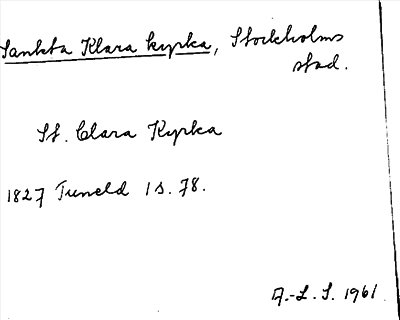 Sankta Klara kyrka, Stockholms
stad.
St. Clara Kyrka
1827 Tuneld I s. 78.
A.-L. S. 1961